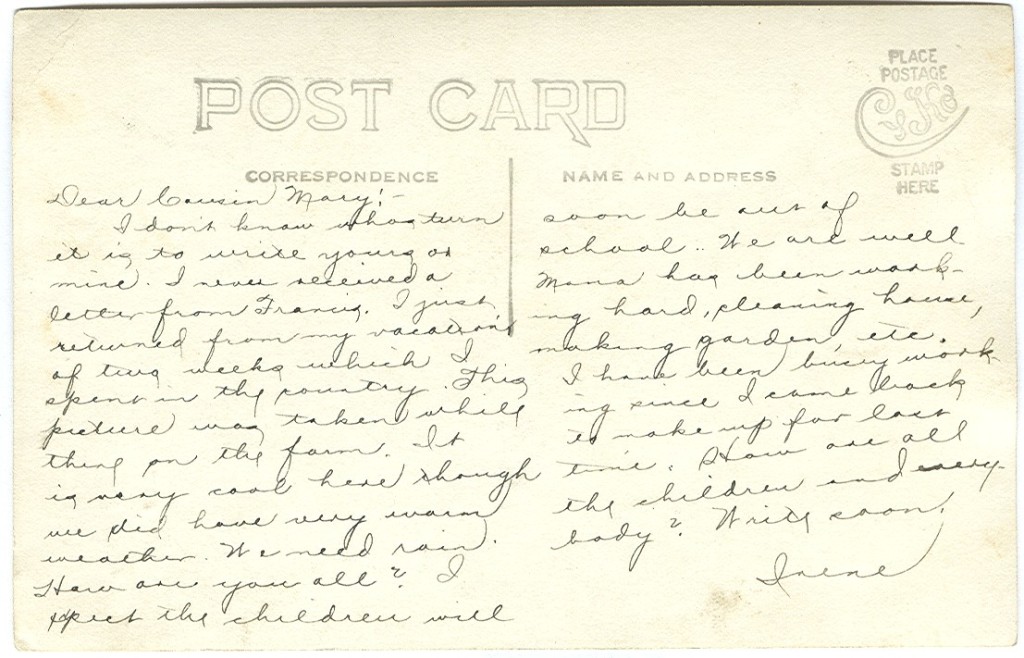 POST CARD
PLACE
POSTAGE
CYKO
STAMP
HERE
CORRESPONDENCE
NAME AND ADDRESS
Dear Cousin Mary:-
I don't know whos turn
it is to write yours or
mine. I never received a
letter from Francis. I just
returned from my vacation
of two weeks which I
spent in the country. This
picture was taken while
there on the farm. It
is very cool here though
we did have very warm
weather. We need rain.
How are you all? I
expect the children will
soon be out of
school.. We are well
Mama has been work-
ing hard, cleaning house,
making garden, etc.
I have been busy work-
ing since I came back
to make up for lost
time. How are all
the children and every-
body? Write soon.
Irene